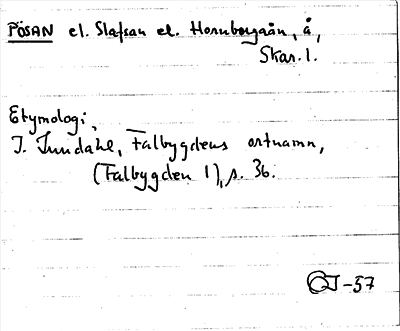 PÖSAN el. Slafsan el. Hornborgaån, å,
Skar. l.
Etymologi,
I. Lundahl, Falbygdens ortnamn,
(Falbygden 1), s. 36.
-57